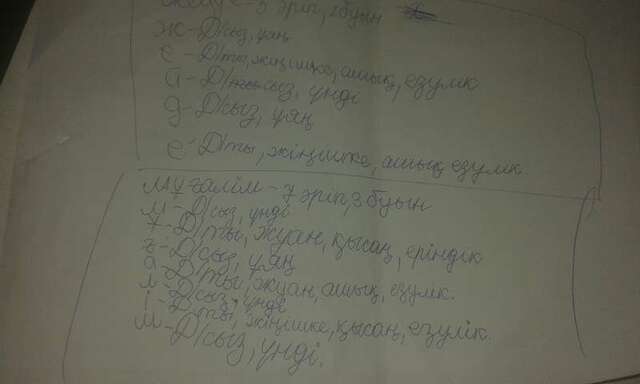 5 әріп, 2 буын
ж - Д/сыз, ұяң
е - Д/ты, жіңішке, ашық, езулік
й - Д/сыз, үнді
д - Д/сыз, ұяң
е - Д/ты, жіңішке, ашық, езулік.
мұғалім - 7 әріп, 3 буын
м - Д/сыз, үнді
ұ - Д/ты, жуан, қысаң, еріндік
ғ - Д/сыз, ұяң
а - Д/ты, жуан, ашық, езулік.
л - Д/сыз, үнді
і - Д/ты, жіңішке, қысаң, езулік.
м - Д/сыз, үнді.